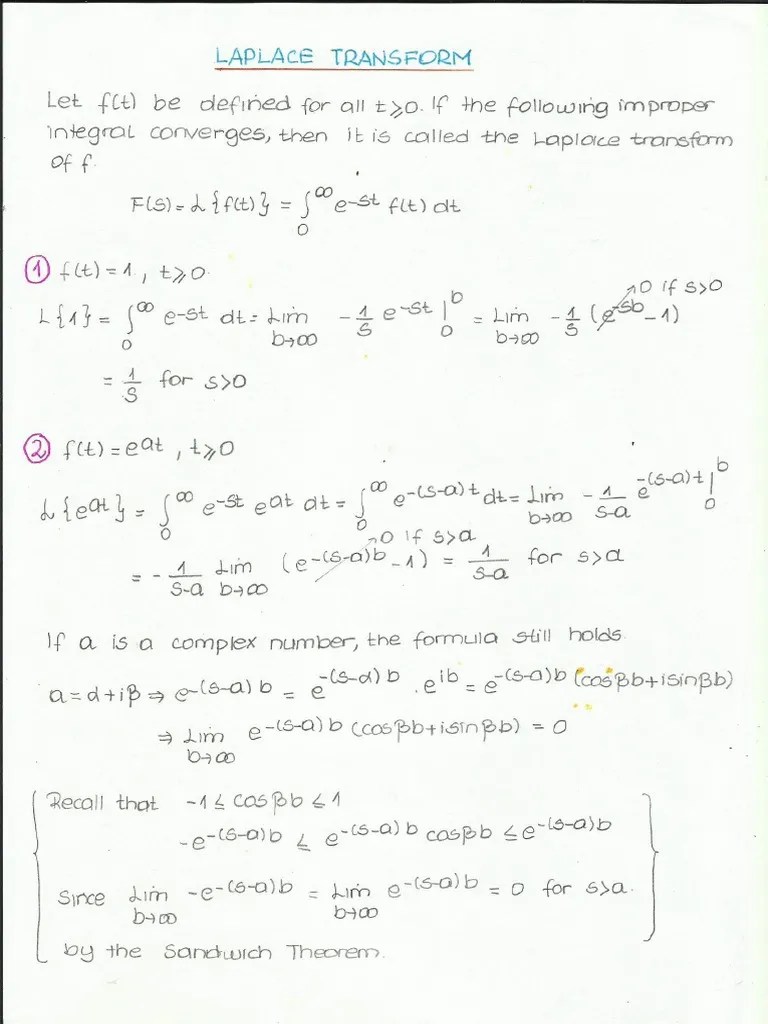 LAPLACE TRANSFORM
Let f(t) be defined for all t≥0. If the following improper
integral converges, then it is called the Laplace transform
of f.
F(s) = L{f(t)} = ∫₀^∞ e^-st f(t) dt
① f(t) = 1, t≥0
L{1} = ∫₀^∞ e^-st dt = Lim b→∞ -1/s e^-st |₀^b = Lim b→∞ -1/s (e^-sb - 1) →0 if s>0
= 1/s for s>0
② f(t) = e^at, t≥0
L{e^at} = ∫₀^∞ e^-st e^at dt = ∫₀^∞ e^-(s-a)t dt = Lim b→∞ -1/(s-a) e^-(s-a)t |₀^b
= -1/(s-a) Lim b→∞ (e^-(s-a)b - 1) →0 if s>a = 1/(s-a) for s>a
If a is a complex number, the formula still holds.
a = d+iβ ⇒ e^-(s-a)b = e^-(s-d)b . e^ib = e^-(s-a)b (cosβb+isinβb)
⇒ Lim b→∞ e^-(s-a)b (cosβb+isinβb) = 0
Recall that -1 ≤ cosβb ≤ 1
-e^-(s-a)b ≤ e^-(s-a)b cosβb ≤ e^-(s-a)b
Since Lim b→∞ -e^-(s-a)b = Lim b→∞ e^-(s-a)b = 0 for s>a.
by the Sandwich Theorem.